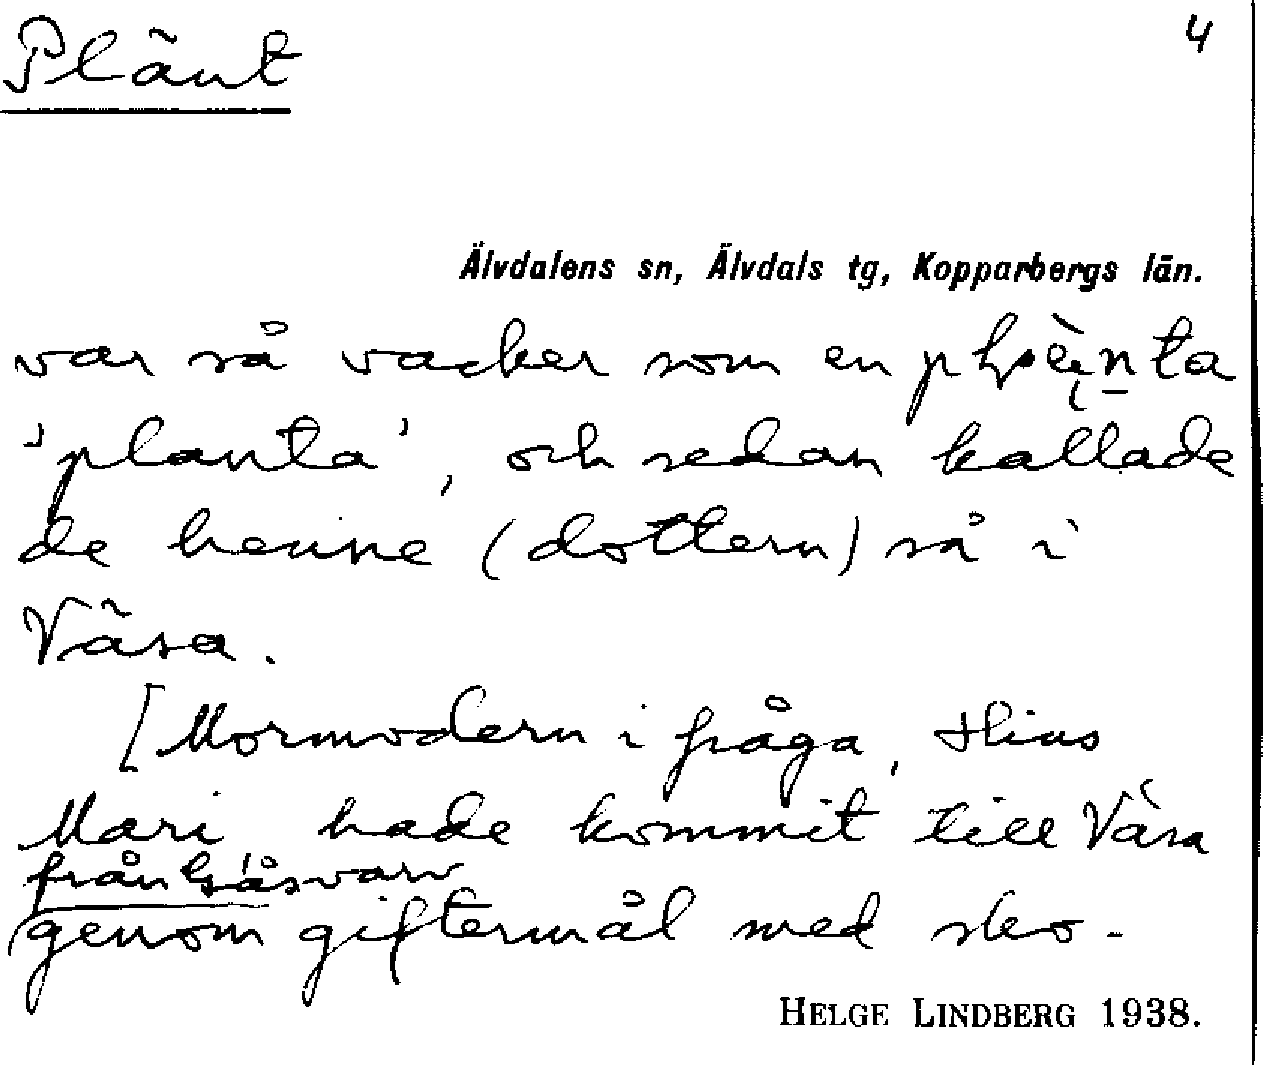 Plänt 4
Älvdalens sn, Älvdals tg, Kopparbergs län.
var så vacker som en
'planta', och sedan kallade
de henne (dottern) så i
Väsa.
[Mormodern i fråga,
Mari hade kommit till Väsa
från Gåsvarv
genom giftermål med sko-
HELGE LINDBERG 1938.